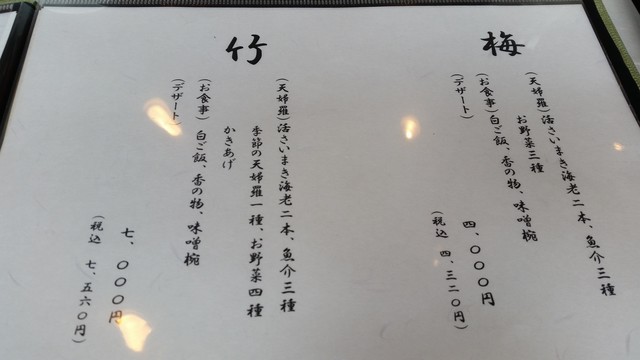 梅
(天婦羅)活さいまき海老二本、魚介三種
お野菜三種
(お食事)白ご飯、香の物、味噌椀
(デザート)
四、〇〇〇円
(税込 四、三二〇円)
竹
(天婦羅)活さいまき海老二本、魚介三種
季節の天婦羅一種、お野菜四種
かきあげ
(お食事)白ご飯、香の物、味噌椀
(デザート)
七、〇〇〇円
(税込 七、五六〇円)